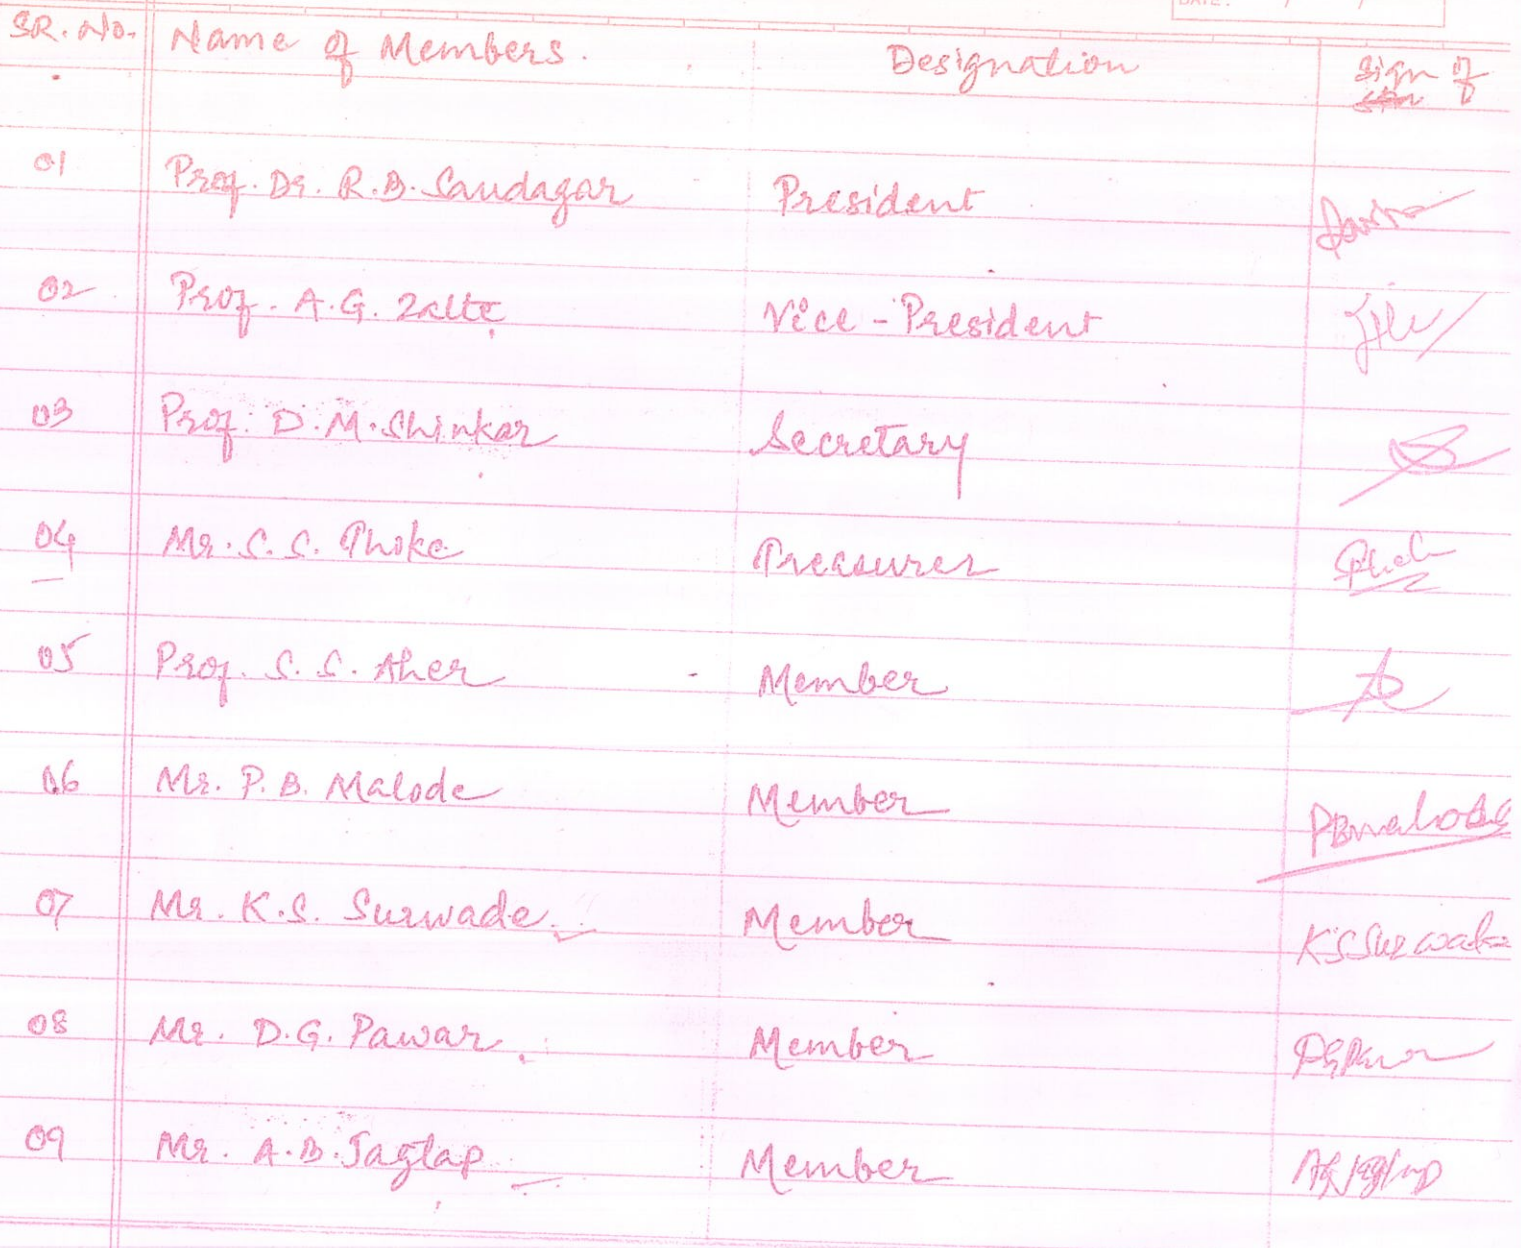 DATE: / /
SR. No. Name of Members. Designation Sign of
01 Prof. Dr. R.B. Saudagar President
02 Prof. A.G. Zalte Vice-President
03 Prof. D.M. Shinkar Secretary
04 Mr. S.S. Thoke Treasurer
05 Prof. S.S. Aher Member
06 Mr. P.B. Malode Member PBmalode
07 Mr. K.S. Surwade Member KSSurwade
08 Mr. D.G. Pawar Member
09 Mr. A.B. Jagtap Member